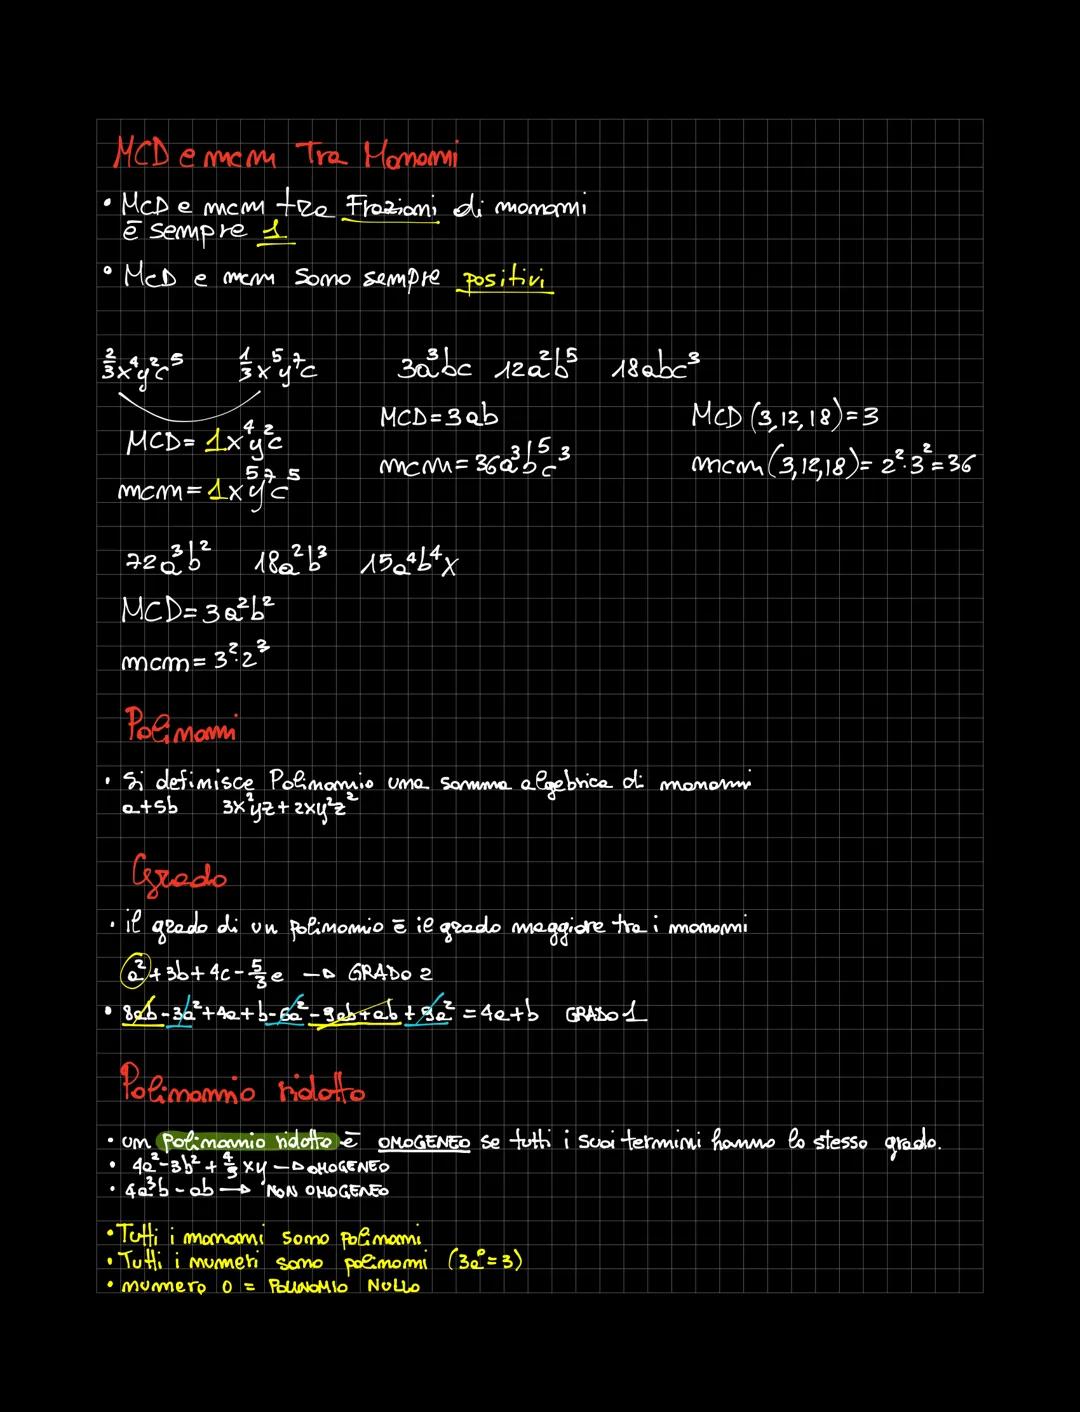 MCD e mcm Tra Monomi
• MCD e mcm tra Frazioni di monomi
è sempre 1
• MCD e mcm sono sempre positivi
2/3x⁴y²c⁵ 1/3x⁵y⁷c 3a³bc 12a²b⁵ 18abc³
MCD=1x⁴y²c MCD=3ab MCD(3,12,18)=3
mcm=1x⁵y⁷c⁵ mcm=36a³b⁵c³ mcm(3,12,18)=2²·3²=36
72a³b² 18a²b³ 15a⁴b⁴x
MCD=3a²b²
mcm=3²·2³
Polinomi
• Si definisce Polinomio una somma algebrica di monomi
a+5b 3x²yz+2xy²z²
Grado
• il grado di un polinomio è il grado maggiore tra i monomi
a²+3b+4c-5/3e → GRADO 2
• 8ab-3a²+4a+b-6a²-9ab+ab+9a²=4a+b GRADO 1
Polinomio ridotto
• un polinomio ridotto è OMOGENEO se tutti i suoi termini hanno lo stesso grado.
• 4a²-3b²+4/3xy → OMOGENEO
• 4a³b-ab → NON OMOGENEO
• Tutti i monomi sono polinomi
• Tutti i numeri sono polinomi (3a⁰=3)
• numero 0 = POLINOMIO NULLO